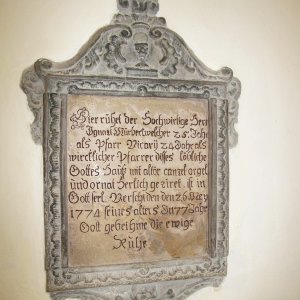 Hier rühet der Hochwirtige Herr
Ignati Würdenwelcher 25 Jahr
als Pfarr Vicarÿ 24 Jahr als
wircklicher Pfarrer dises löbliche
Gottes Hauß mit altär canzel orgel
und ornat herlich geziret ist in
Gott seel. Verschiden den 26 May
1774 seines alters In 77 Jahr
Gott gebe ihme die ewige
Ruhe